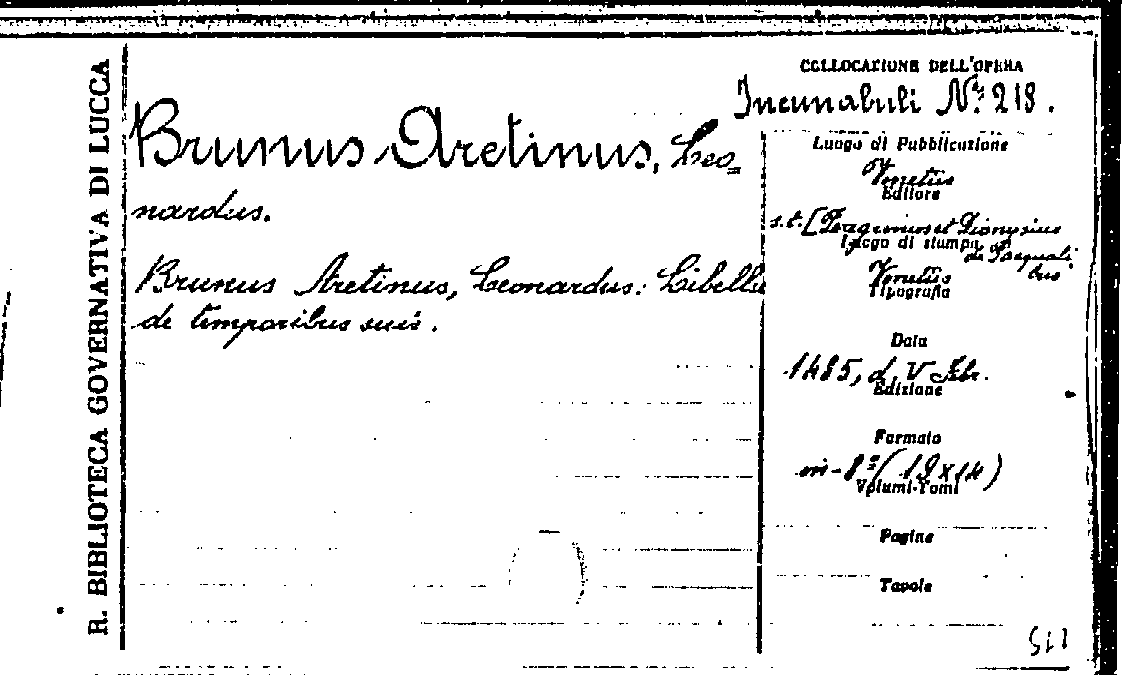 R. BIBLIOTECA GOVERNATIVA DI LUCCA
COLLOCAZIONE DELL'OPERA
Incunabuli No. 218.
Brunus Aretinus, Leo=
nardus.
Brunus Aretinus, Leonardus: Libellu
de temporibus suis.
Luogo di Pubblicazione
Venetiis
Editore
s.t. [Peregrinus et Dionysius
de Pasquali
bus
Luogo di stampa
Venetiis
Tipografia
Data
1485, d. V Febr.
Edizione
Formato
in-8º (19x14)
Volumi-Tomi
Pagine
Tavole